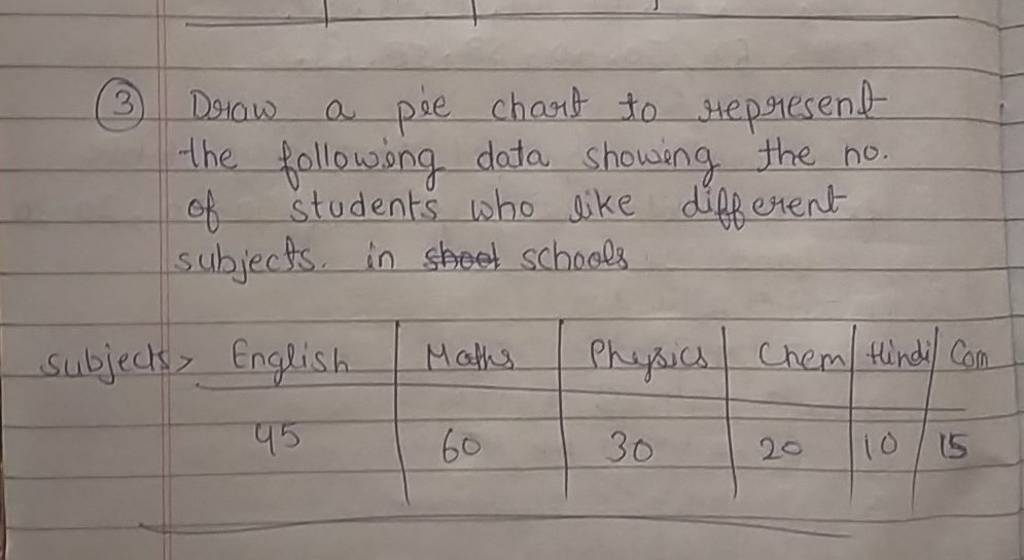 3 Draw a pie chart to represent
the following data showing the no.
of students who like different
subjects. in schools
Subjects> English Maths Physics Chem Hindi Com
45 60 30 20 10 15